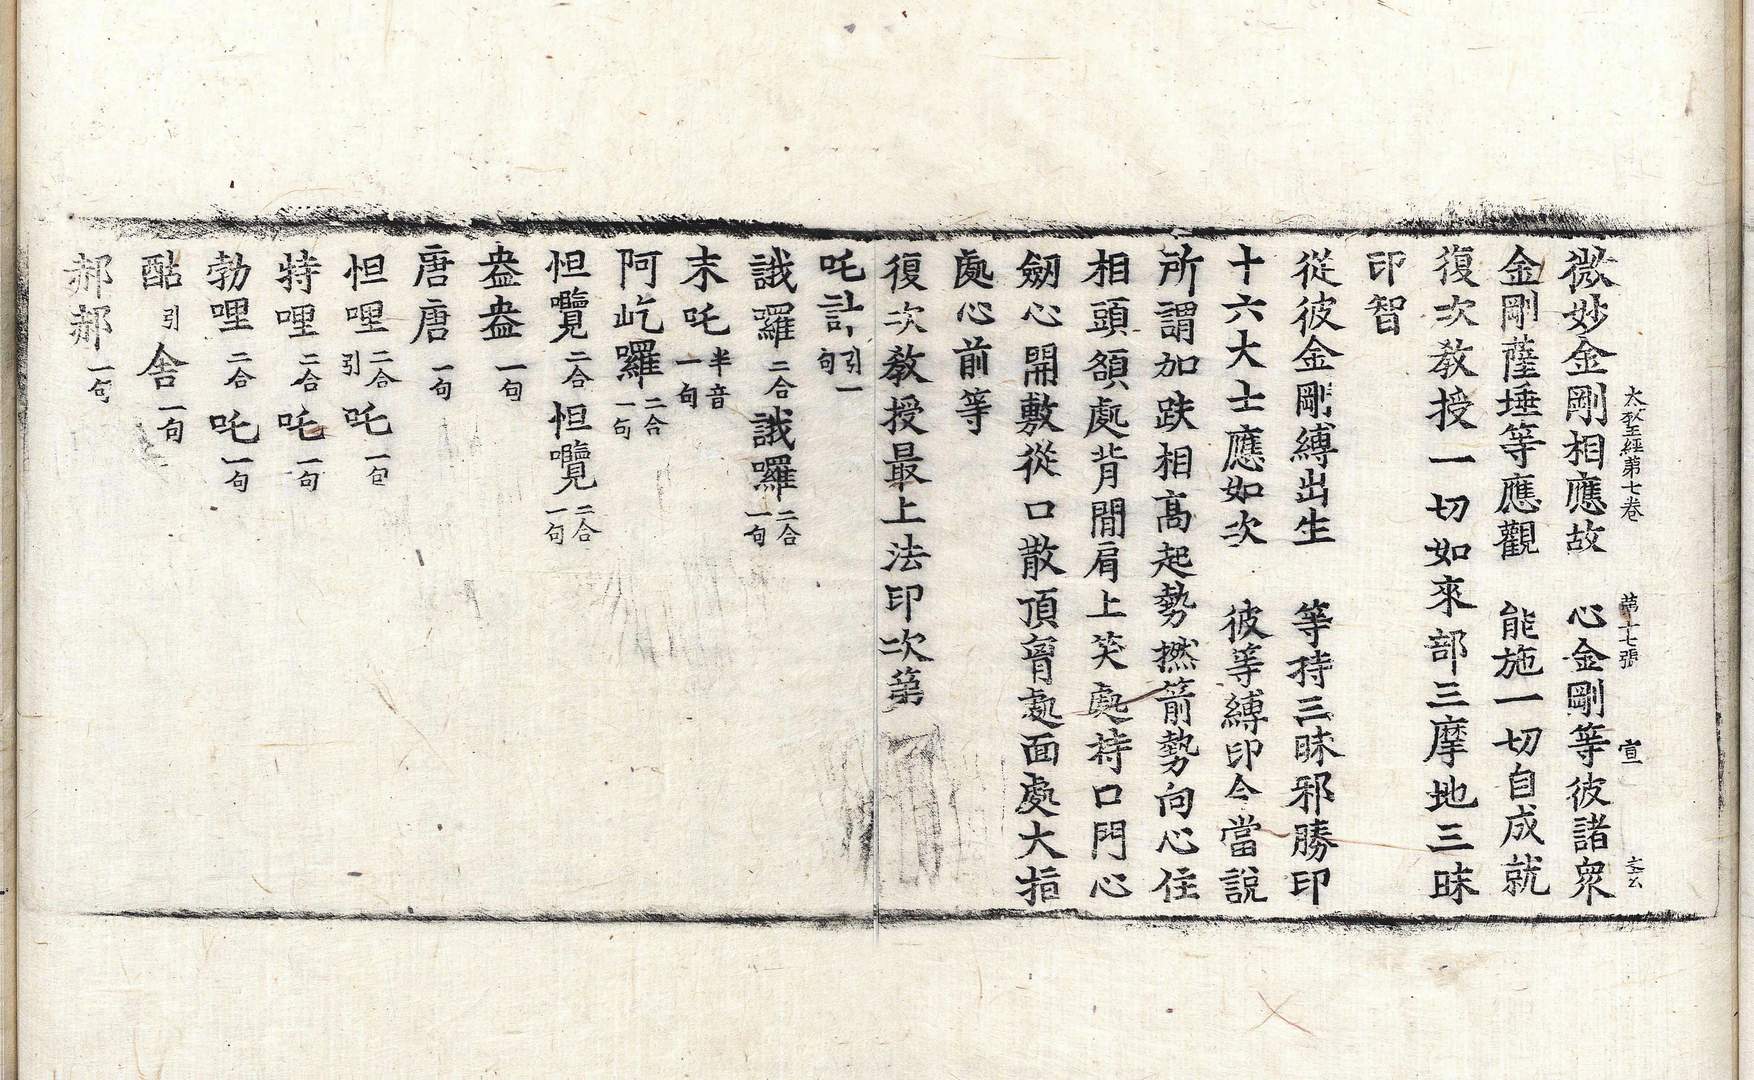 大教王經第七卷 第十七張 宣
微妙金剛相應故 心金剛等彼諸衆
金剛薩埵等應觀 能施一切自成就
復次教授一切如來部三摩地三昧
印智
從彼金剛縛出生 等持三昧邪勝印
十六大士應如次 彼等縛印今當說
所謂加趺相高起勢撚箭勢向心住
相頭頷處背閒肩上笑處持口門心
劒心開敷從口散頂𦚾處面處大指
處心前等
復次教授最上法印次第
吒訁引一句
誐囉二合誐囉二合一句
末吒半音一句
阿屹囉二合一句
怛囕二合怛囕二合一句
盎盎一句
唐唐一句
怛哩二合引吒一句
特哩二合吒一句
勃哩二合吒一句
酤引舍一句
郝郝一句